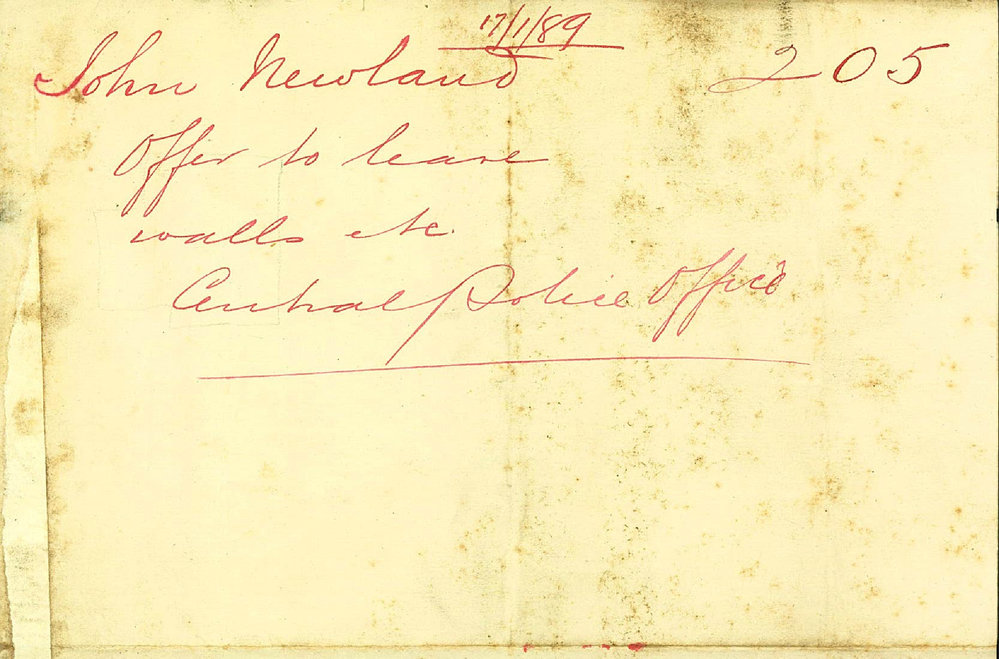 17/1/89
John Newland 205
Offer to lease
walls etc.
Central Police Office